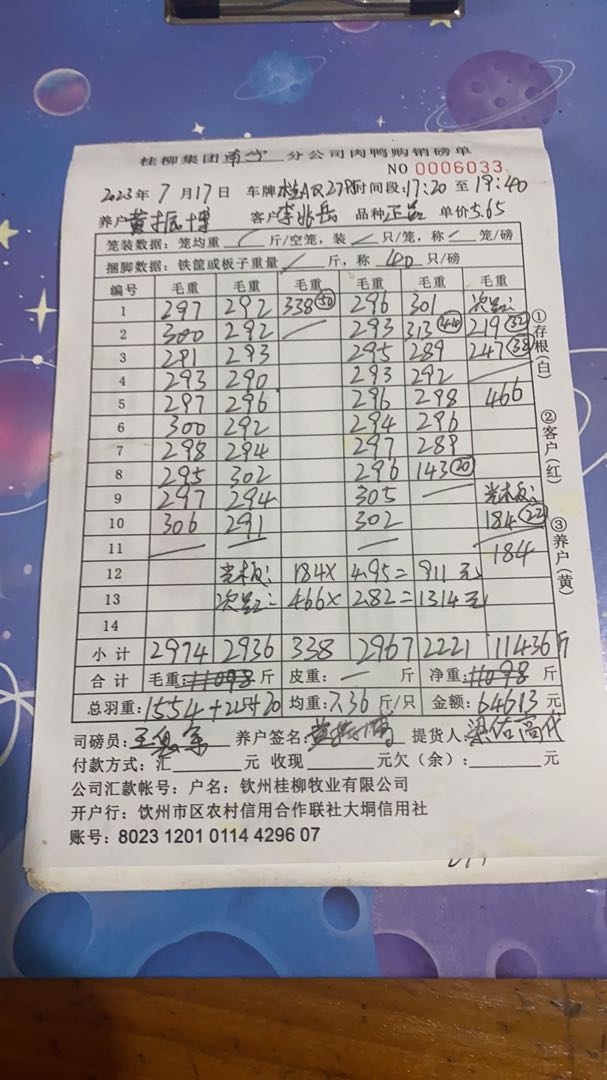 桂柳集团南宁分公司肉鸭购销磅单
NO 0006033
2023年7月17日 车牌:桂A 时间段:17:20至19:40
养户黄振博 客户李兆岳 品种正品 单价5.65
笼装数据:笼均重/斤/空笼,装/只/笼,称/笼/磅
捆脚数据:铁筐或板子重量/斤,称40只/磅
编号 毛重 毛重 毛重 毛重 毛重 毛重
1 297 292 338(50) 296 301 次品:
2 300 292 / 293 313(440) 219(32)
3 281 293 295 289 247(38)
4 293 290 293 292 /
5 297 296 296 298 466
6 300 292 294 296
7 298 294 297 289
8 295 302 296 143(20)
9 297 294 305 / 光板:
10 306 291 302 184(22)
11 / / / 184
12 光板: 184× 4.95= 911元
13 次品: 466× 2.82= 1314元
14
小计 2974 2936 338 2967 2221 11436斤
合计 毛重:11098斤 皮重:—斤 净重:11098斤
总羽重:1554+22+70 均重:7.36斤/只 金额:64613元
司磅员: 养户签名:黄振博 提货人:
付款方式:汇____元 收现____元欠(余):____元
公司汇款帐号:户名:钦州桂柳牧业有限公司
开户行:钦州市区农村信用合作联社大垌信用社
账号:8023 1201 0114 4296 07
①存根(白)
②客户(红)
③养户(黄)